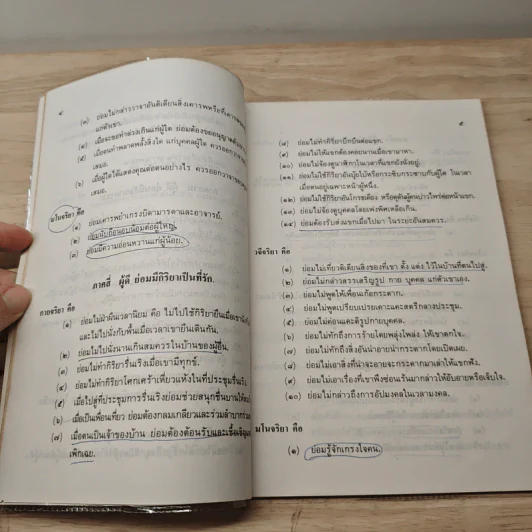 ๔
(๓) ย่อมไม่กล่าววาจาอันติเตียนสิ่งเคารพหรือที่เคารพของผู้อื่น
แก่ตัวเขา.
(๔) เมื่อจะขอทำล่วงเกินแก่ผู้ใด ย่อมต้องขออนุญาตตัวเขาก่อน
(๕) เมื่อตนทำพลาดพลั้งสิ่งใด แก่บุคคลผู้ใด ควรออกวาจาขอโทษ
เสมอ.
(๖) เมื่อผู้ใดได้แสดงคุณต่อตนอย่างไร ควรออกวาจาขอบคุณ
เสมอ.
มโนจริยา คือ
(๑) ย่อมเคารพยำเกรงบิดามารดาและอาจารย์.
(๒) ย่อมนับถือนอบน้อมต่อผู้ใหญ่.
(๓) ย่อมมีความอ่อนหวานแก่ผู้น้อย.
ภาคสี่ ผู้ดี ย่อมมีกิริยาเป็นที่รัก.
กายจริยา คือ
(๑) ย่อมไม่ฝ่าฝืนเวลานิยม คือ ไม่ไปใช้กิริยายืนเมื่อเขานั่ง
และไม่ไปนั่งกับพื้นเมื่อเวลาเขายืนเดินกัน.
(๒) ย่อมไม่ไปนั่งนานเกินสมควรในบ้านของผู้อื่น.
(๓) ย่อมไม่ทำกิริยารื่นเริงเมื่อเขามีทุกข์.
(๔) ย่อมไม่ทำกิริยาโศกเศร้าเหี่ยวแห้งในที่ประชุมรื่นเริง
(๕) เมื่อไปสู่ที่ประชุมการรื่นเริงย่อมช่วยสนุกชื่นบานให้สม
(๖) เมื่อเป็นเพื่อนเที่ยว ย่อมต้องกลมเกลียวและร่วมลำบาก
(๗) เมื่อตนเป็นเจ้าของบ้าน ย่อมต้องต้อนรับและเชื้อเชิญ
เพิกเฉย.
๕
(๘) ย่อมไม่ทำกิริยาบึกบึนต่อแขก.
(๙) ย่อมไม่ให้แขกต้องคอยนานเมื่อเขามาหา.
(๑๐) ย่อมไม่จ้องดูนาฬิกาในเวลาที่แขกยังนั่งอยู่.
(๑๑) ย่อมไม่ใช้กิริยาอันบุ้ยใบ้หรือกระซิบกระซาบกับผู้ใด ในเวลา
เมื่อตนอยู่เฉพาะหน้าผู้หนึ่ง.
(๑๒) ย่อมไม่ใช้กิริยาอันโกรธเคือง หรือดุดันผู้คนบ่าวไพร่ต่อหน้าแขก.
(๑๓) ย่อมไม่จ้องดูบุคคลโดยเพ่งพิศเหลือเกิน.
(๑๔) ย่อมต้องรับส่งแขกเมื่อไปมา ในระยะอันสมควร.
วจีจริยา คือ
(๑) ย่อมไม่เที่ยวติเตียนสิ่งของที่เขา ตั้ง แต่ง ไว้ในบ้านที่ตนไปสู่.
(๒) ย่อมไม่กล่าวสรรเสริญรูป กาย บุคคล แก่ตัวเขาเอง.
(๓) ย่อมไม่พูดให้เพื่อนเก้อกระดาก.
(๔) ย่อมไม่พูดเปรียบเปรยเคาะแคะสตรีกลางประชุม.
(๕) ย่อมไม่ค่อนแคะติรูปกายบุคคล.
(๖) ย่อมไม่ทักถึงการร้ายโดยพลุ่งโพล่ง ให้เขาตกใจ.
(๗) ย่อมไม่ทักถึงสิ่งอันน่าอายน่ากระดากโดยเปิดเผย.
(๘) ย่อมไม่เอาสิ่งที่น่าจะอายจะกระดากมาเล่าให้แขกฟัง.
(๙) ย่อมไม่เอาเรื่องที่เขาพึงซ่อนเร้นมากล่าวให้อับอายหรือเจ็บใจ.
(๑๐) ย่อมไม่กล่าวถึงการอัปมงคลในเวลามงคล.
มโนจริยา คือ
(๑) ย่อมรู้จักเกรงใจคน.